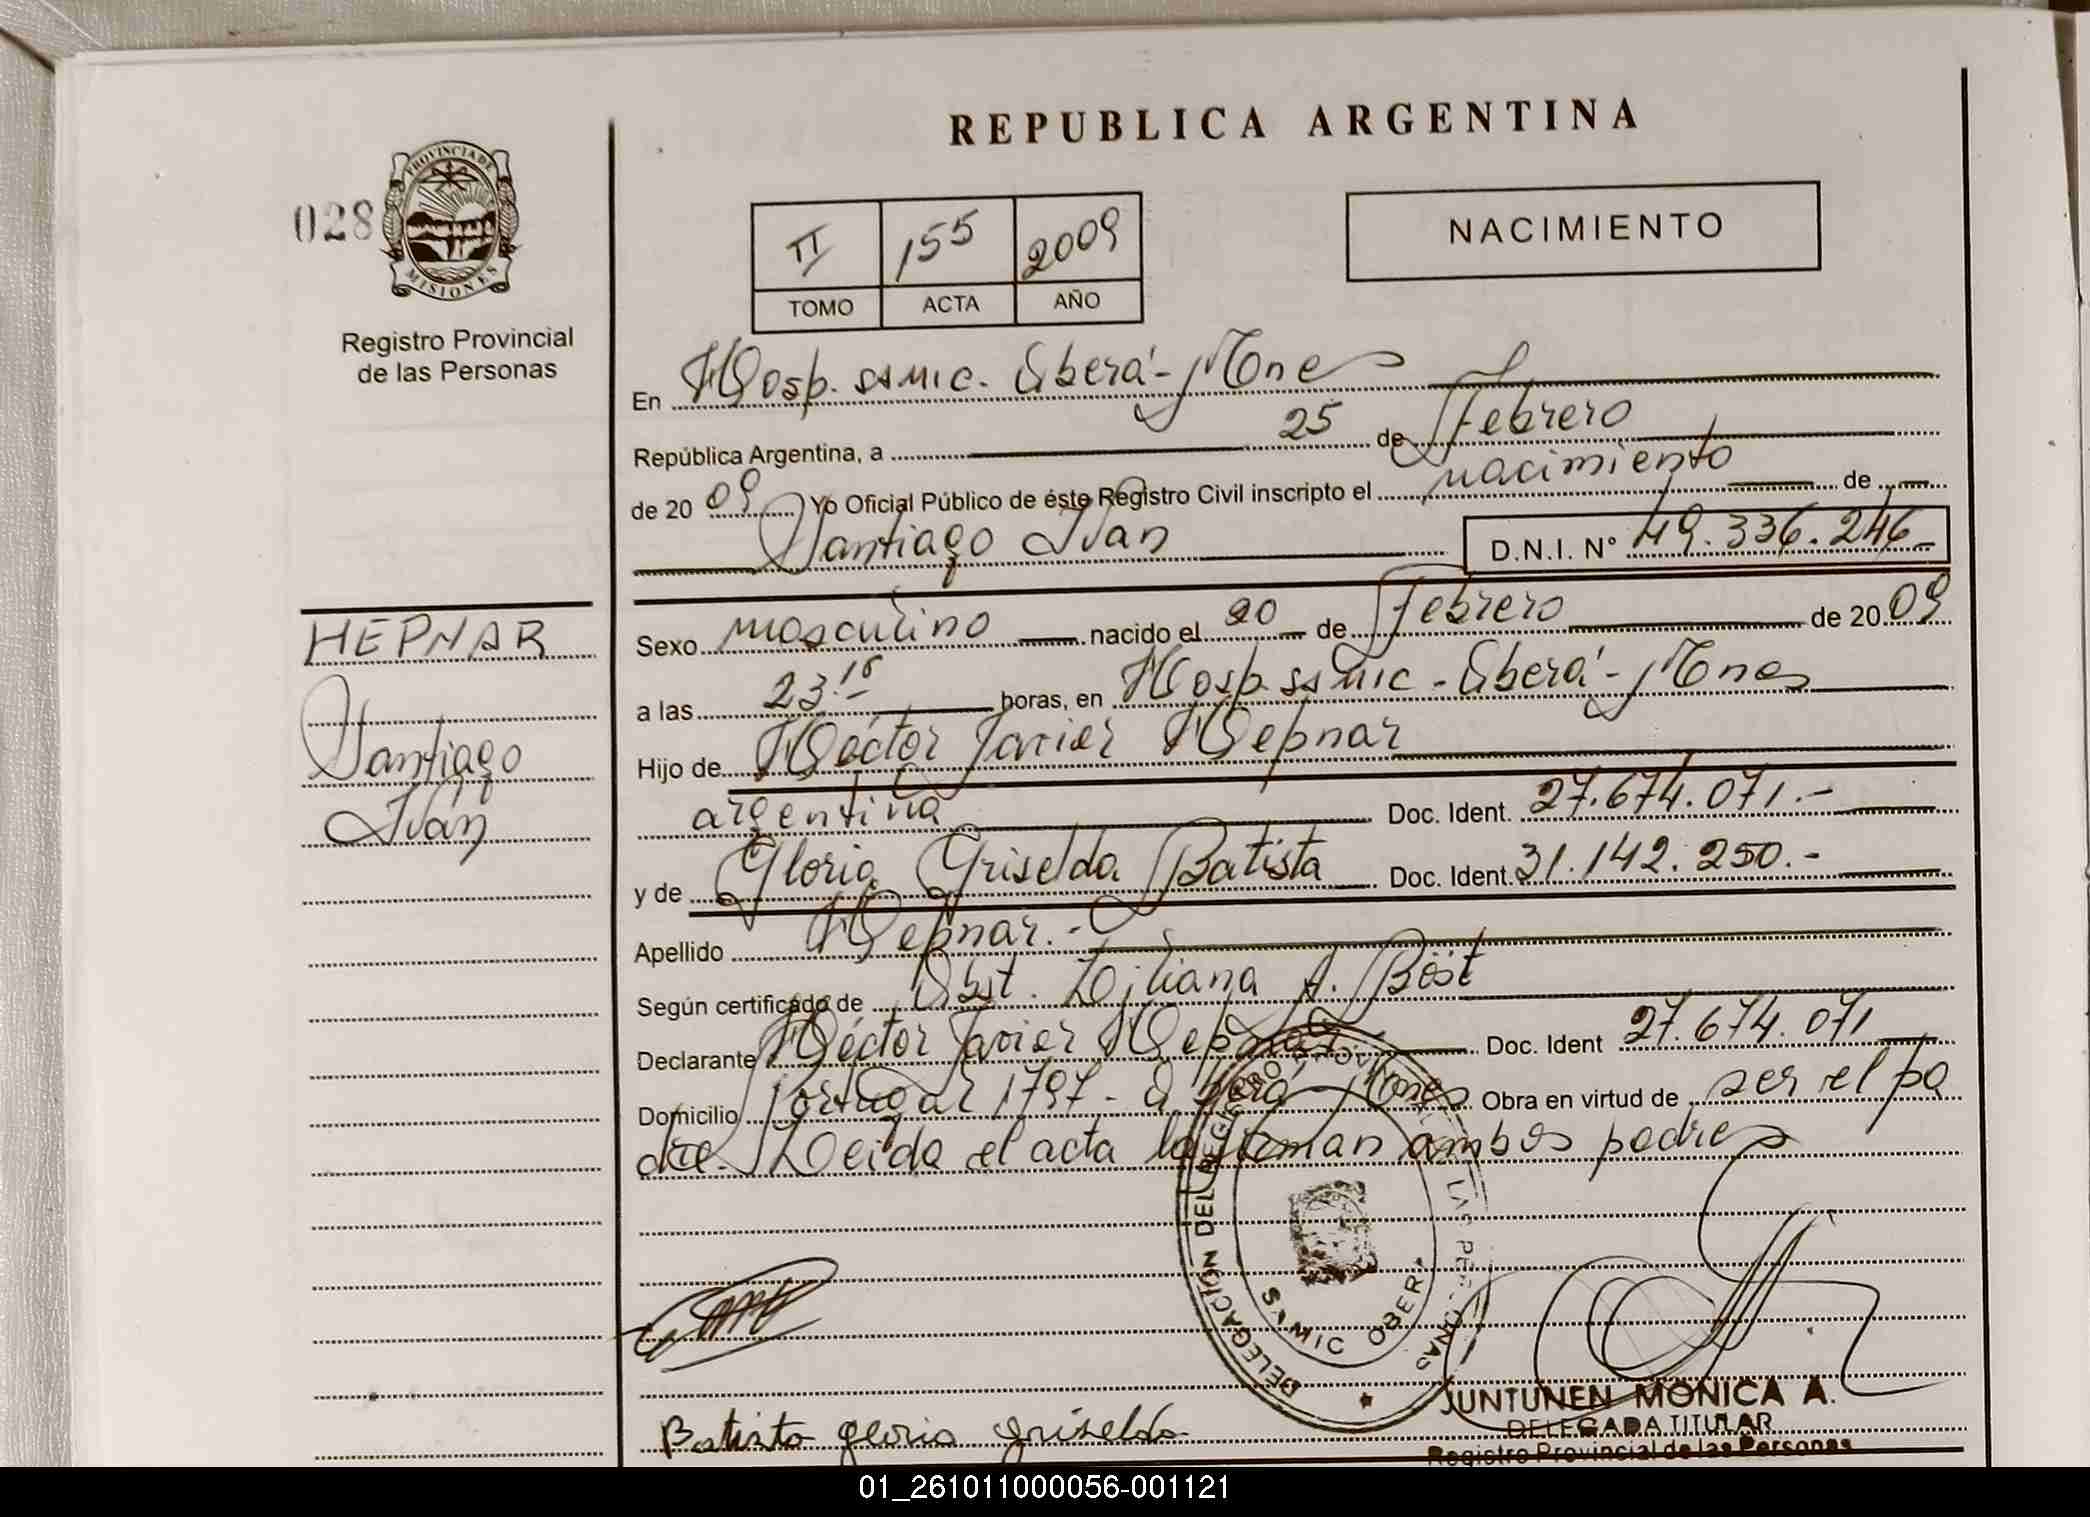 REPUBLICA ARGENTINA
028
PROVINCIA DE
MISIONES
Registro Provincial
de las Personas
II 155 2009
TOMO ACTA AÑO
NACIMIENTO
En Hosp. ssmic. Oberá - Mnes
República Argentina, a 25 de Febrero
de 20 09 Yo Oficial Público de éste Registro Civil inscripto el nacimiento de
Santiago Ivan D.N.I. N° 49.336.246-
HEPNAR
Santiago
Iván
Sexo masculino nacido el 20 de Febrero de 20 09
a las 23.15 horas, en Hosp. ssmic - Oberá - Mnes
Hijo de Héctor Javier Hepnar
argentina Doc. Ident. 27.674.071.-
y de Gloria Griselda Batista Doc. Ident. 31.142.250.-
Apellido Hepnar.-
Según certificado de Obst. Liliana A. Böst
Declarante Héctor Javier Hepnar Doc. Ident 27.674.071
Domicilio Portugal 1797 - Oberá, Mnes Obra en virtud de ser el pa
dre. Leida el acta la firman ambos padres
DELEGACIÓN DEL REGISTRO PROVINCIAL DE LAS PERSONAS
SAMIC OBERA
Batista gloria griselda
JUNTUNEN MONICA A.
DELEGADA TITULAR
Registro Provincial de las Personas
01_261011000056-001121